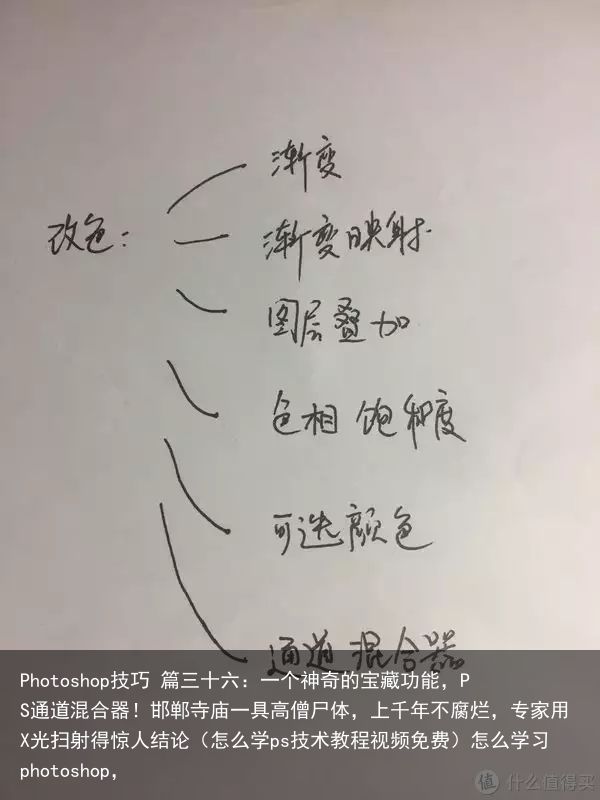 渐变
改色：
渐变映射
图层叠加
色相 饱和度
可选颜色
通道混合器
Photoshop技巧 篇三十六：一个神奇的宝藏功能，P
S通道混合器！邯郸寺庙一具高僧尸体，上千年不腐烂，专家用
X光扫射得惊人结论（怎么学ps技术教程视频免费）怎么学习
photoshop，
值 什么值得买